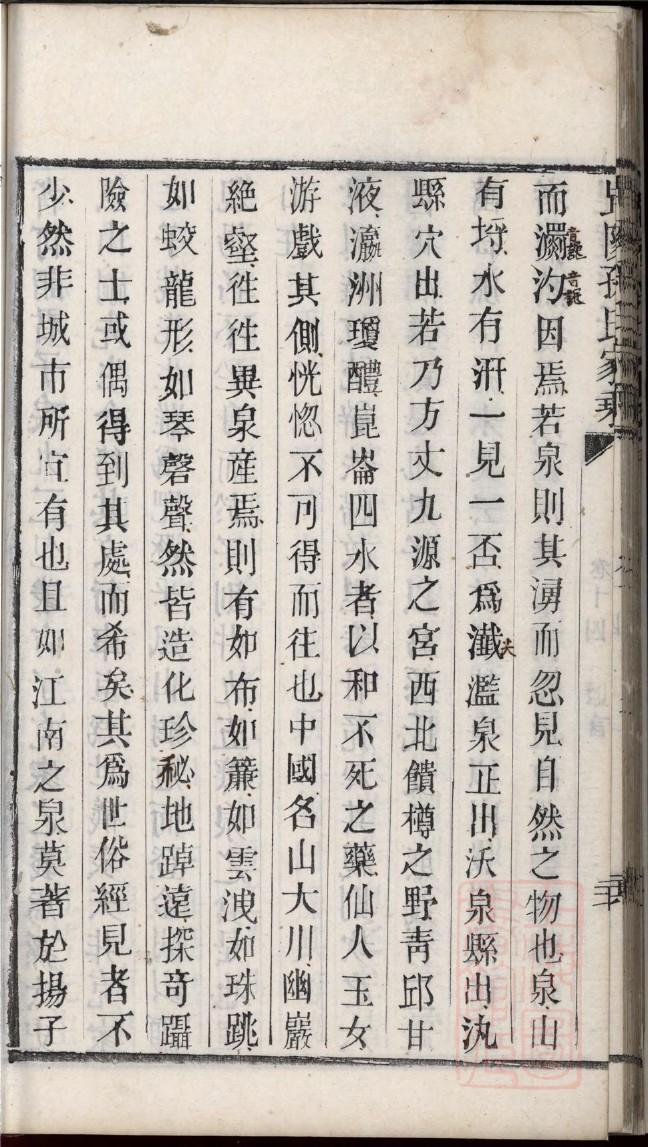 而瀱汋因焉若泉則其湧而忽見自然之物也泉山
有埒水有汧一見一否為瀸濫泉正出沃泉縣出氿
縣穴出若乃方丈九源之宮西北饋樽之野青邱甘
液瀛洲瓊醴崑崙四水者以和不死之藥仙人玉女
游戲其側恍惚不可得而往也中國名山大川幽巖
絕壑徃徃異泉產焉則有如布如簾如雲洩如珠跳
如蛟龍形如琴磬聲然皆造化珍秘地踔遠探奇躡
險之士或偶得到其處而希矣其為世俗經見者不
少然非城市所宜有也且如江南之泉莫著於揚子